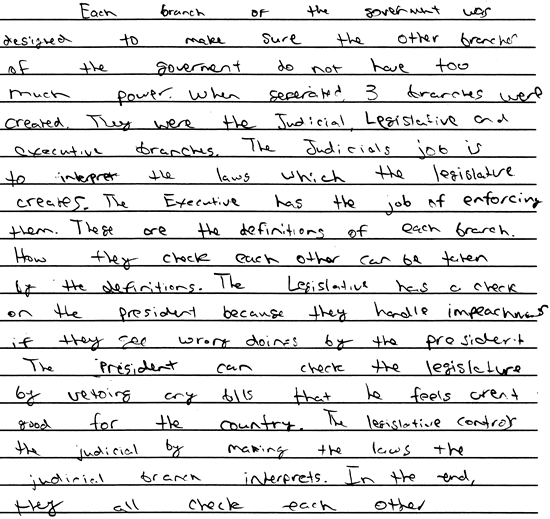 Each branch of the goverment was
designed to make sure the other branches
of the goverment do not have too
much power. When seperated, 3 branches were
created. They were the Judicial, Legislative and
executive branches. The Judicials job is
to interpret the laws which the legislature
creates. The Executive has the job of enforcing
them. These are the definitions of each branch.
How they check each other can be taken
by the definitions. The Legislative has a check
on the president because they handle impeachments
if they see wrong doings by the president
The president can check the legislature
by vetoing any bills that he feels arent
good for the country. The legislative controls
the judicial by making the laws the
judicial branch interprets. In the end,
they all check each other